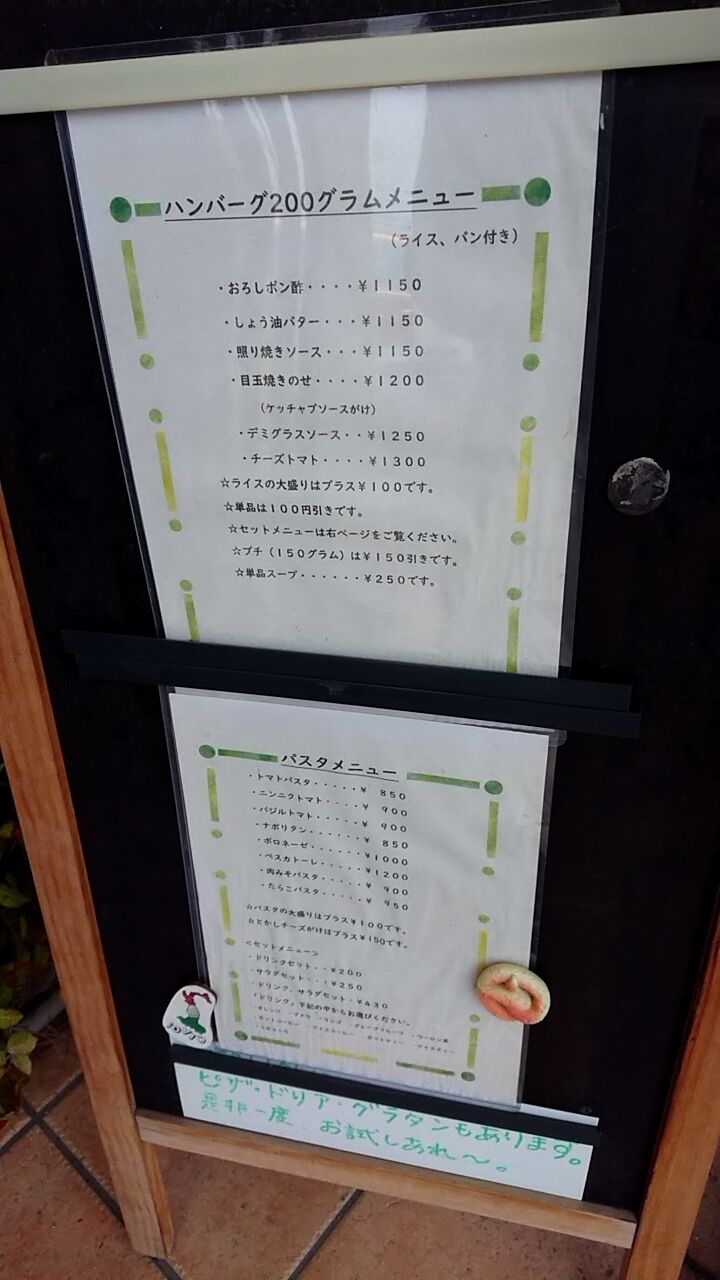 ハンバーグ200グラムメニュー
（ライス、パン付き）
・おろしポン酢・・・・￥1150
・しょう油バター・・・￥1150
・照り焼きソース・・・￥1150
・目玉焼きのせ・・・・￥1200
（ケッチャプソースがけ）
・デミグラスソース・・￥1250
・チーズトマト・・・・￥1300
☆ライスの大盛りはプラス￥100です。
☆単品は100円引きです。
☆セットメニューは右ページをご覧ください。
☆プチ（150グラム）は￥150引きです。
☆単品スープ・・・・・・￥250です。
パスタメニュー
・トマトパスタ・・・・・￥ 850
・ニンニクトマト・・・・￥ 900
・バジルトマト・・・・・￥ 900
・ナポリタン・・・・・・￥ 850
・ボロネーゼ・・・・・・￥1000
・ペスカトーレ・・・・・￥1200
・肉みそパスタ・・・・・￥ 900
・たらこパスタ・・・・・￥ 950
☆パスタの大盛りはプラス￥100です。
☆とかしチーズがけはプラス￥150です。
＜セットメニュー＞
・ドリンクセット・・￥200
・サラダセット・・・￥250
・ドリンク、サラダセット・￥430
「ドリンク」下記の中からお選びください。
・オレンジ ・ブドウ ・リンゴ ・グレープフルーツ ・ウーロン茶
・ホットコーヒー ・アイスコーヒー ・ホットティー ・アイスティー
ピザ・ドリア・グラタンもあります。
是非一度 お試しあれ〜。